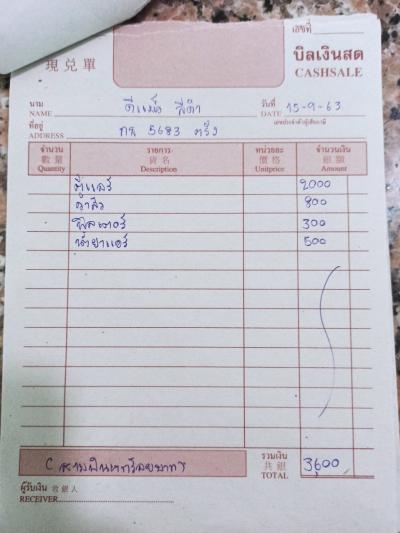 เลขที่
現兌單
บิลเงินสด
CASHSALE
นาม
NAME
วันที่
DATE 15-9-63
ที่อยู่
ADDRESS กท 5683 ตรัง
เลขประจำตัวผู้เสียภาษี
จำนวน รายการ หน่วยละ จำนวนเงิน
數量 貨名 價格 銀額
Quantity Description Unitprice Amount
ตู้แอร์ 2000
วาล์ว 800
ฟิลเตอร์ 300
น้ำยาแอร์ 500
(สามพันหกร้อยบาท)
รวมเงิน
共銀
TOTAL 3600
ผู้รับเงิน 收銀人
RECEIVER